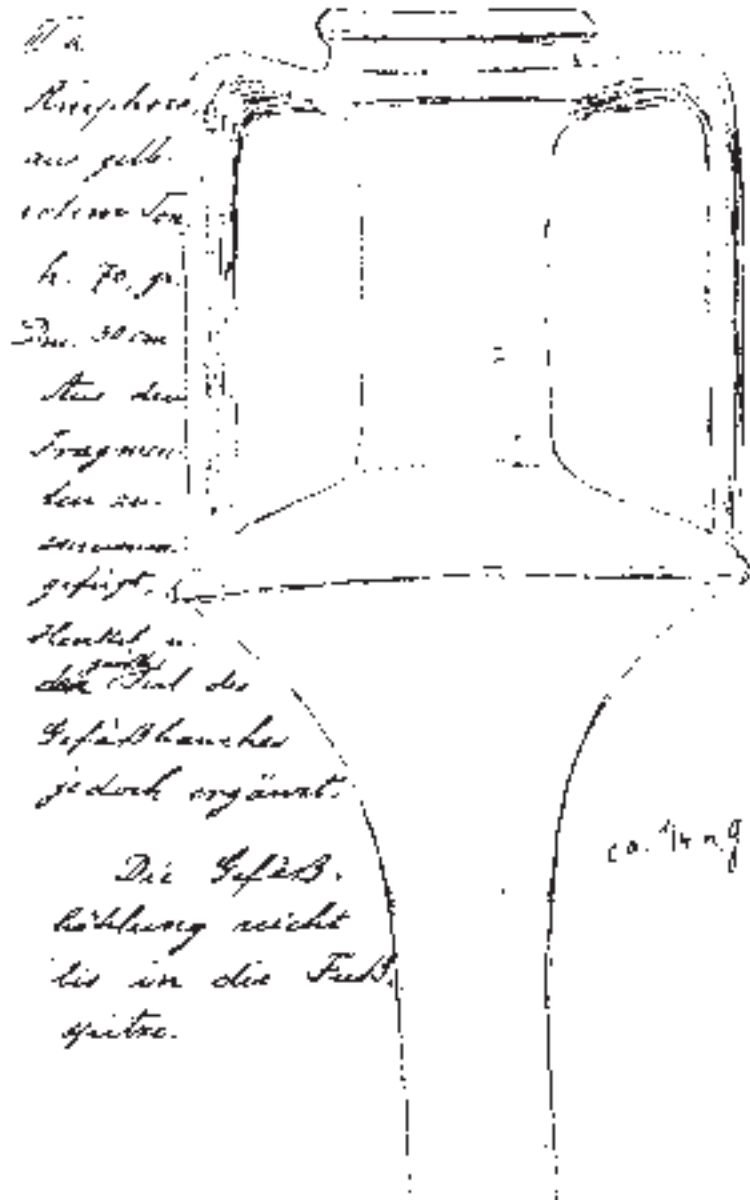 Amphore,
aus gelb-
rotem Ton,
h. 70, gr.
Dm. 30 cm
Aus den
Fragmen-
ten zu-
sammen-
gefügt,
Henkel u.
der Teil des
Gefäßbauches
jedoch ergänzt.
Die Gefäß-
höhlung reicht
bis in die Fuß-
spitze.
ca. 1/4 n. g